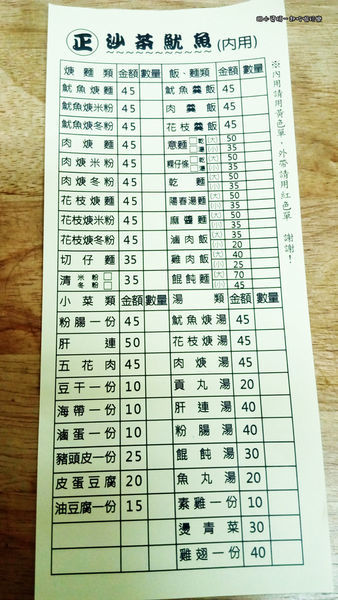 正 沙茶魷魚 (內用)
焿麵類 金額 數量
魷魚焿麵 45
魷魚焿米粉 45
魷魚焿冬粉 45
肉焿麵 45
肉焿米粉 45
肉焿冬粉 45
花枝焿麵 45
花枝焿米粉 45
花枝焿冬粉 45
切仔麵 35
清 米粉 冬粉 35
小菜類 金額 數量
粉腸一份 45
肝連 50
五花肉 45
豆干一份 10
海帶一份 10
滷蛋一份 10
豬頭皮一份 25
皮蛋豆腐 20
油豆腐一份 15
飯、麵類 金額 數量
魷魚羹飯 45
肉羹飯 45
花枝羹飯 45
意麵 乾 湯 大 50 小 35
粿仔條 乾 湯 大 50 小 35
乾麵 大 50 小 35
陽春湯麵 大 50 小 35
麻醬麵 大 50 小 35
滷肉飯 大 35 小 20
雞肉飯 大 40 小 25
餛飩麵 大 70 小 35
湯類 金額 數量
魷魚焿湯 45
花枝焿湯 45
肉焿湯 45
貢丸湯 20
肝連湯 40
粉腸湯 40
餛飩湯 30
魚丸湯 20
素雞一份 10
燙青菜 30
雞翅一份 40
※內用請用黃色單、外帶請用紅色單 謝謝!